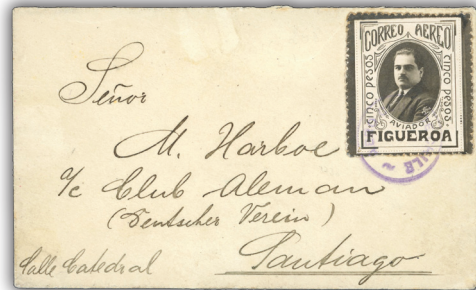 CORREO AEREO
CINCO PESOS
CINCO PESOS
AVIADOR
FIGUEROA
Señor
M. Harboe
c/c Club Aleman
(Deutscher Verein)
Santiago
Calle Catedral